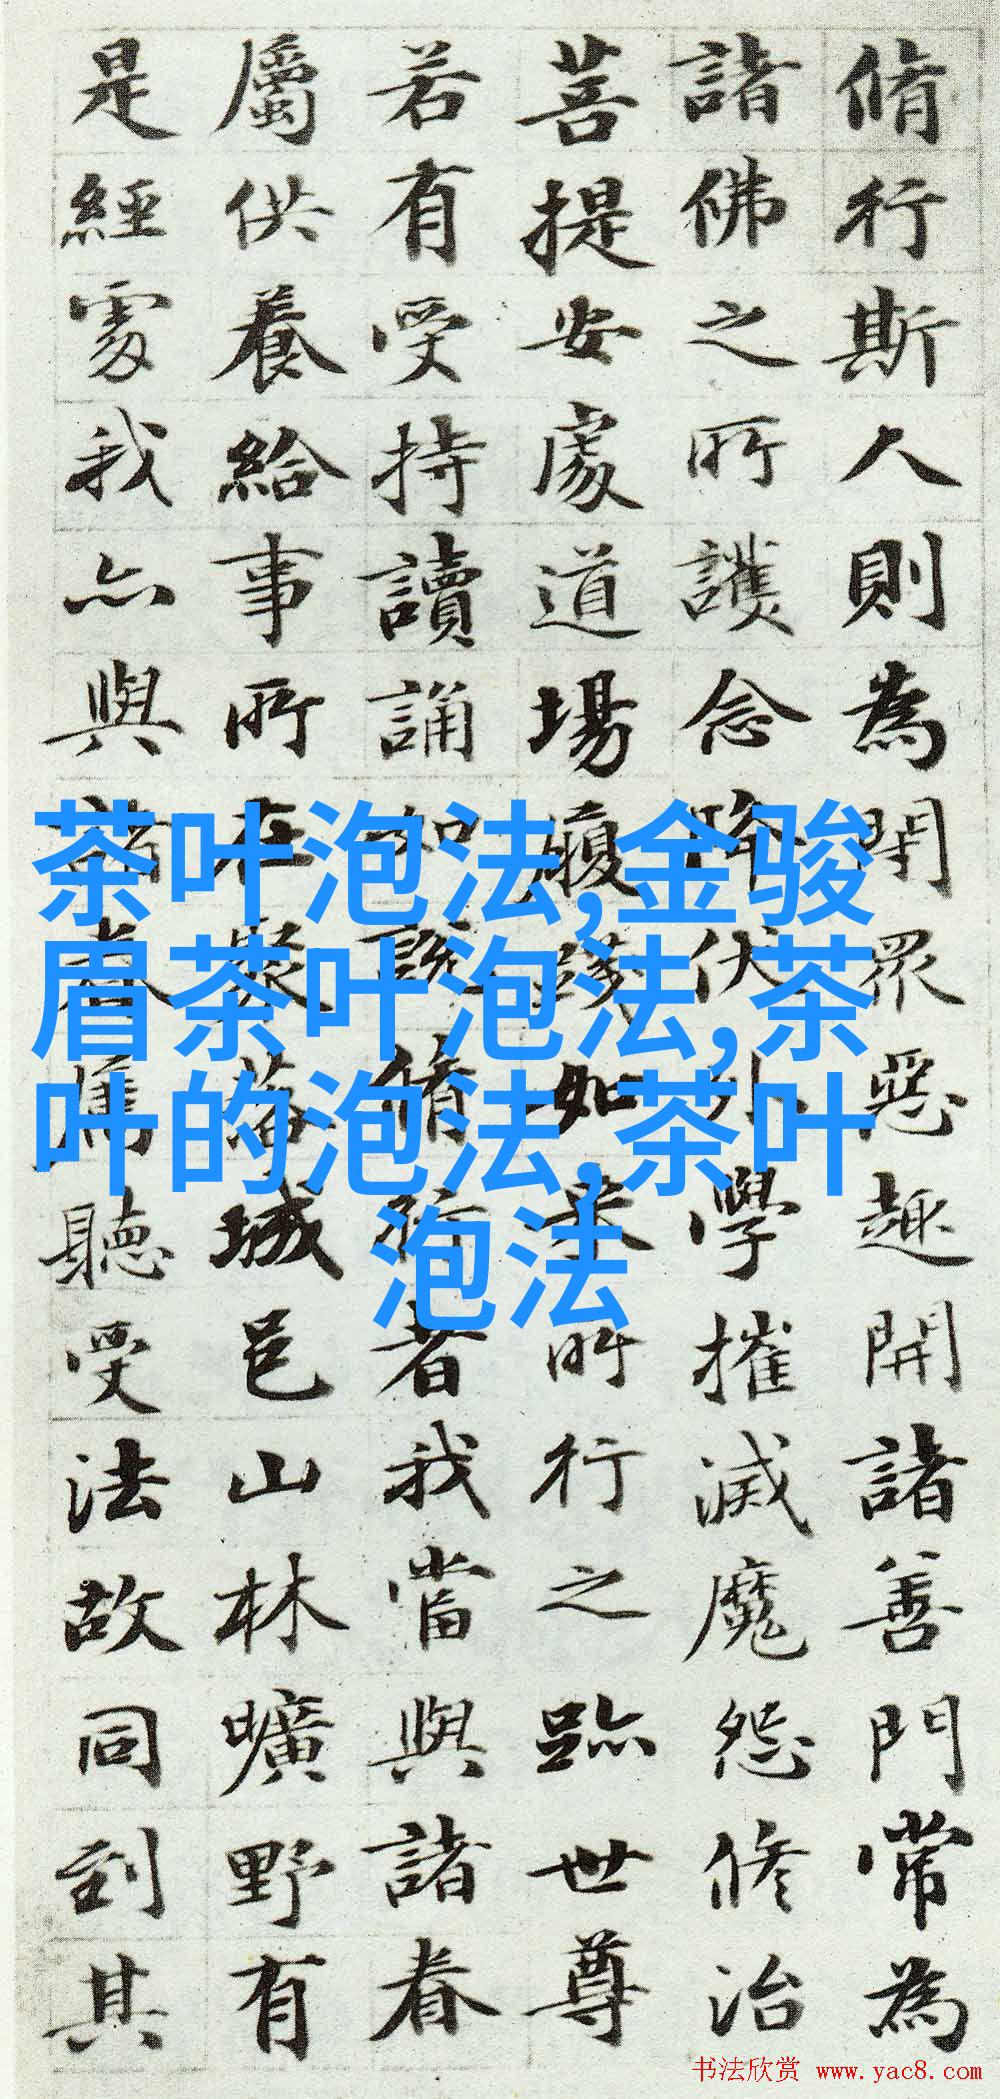 脩行斯人則為閇眾惡趣開諸善門常為
諸佛之所護念降伏外學摧滅魔怨修治
菩提安處道場履踐如來所行之跡世尊
若有受持讀誦如說脩行者我當與諸眷
屬供養給事所在聚落城邑山林曠野有
是經處我亦與諸眷屬聽受法故同到其
茶叶泡法,金骏
眉茶叶泡法,茶
叶的泡法,茶叶
泡法
书法欣赏 www.yac8.com